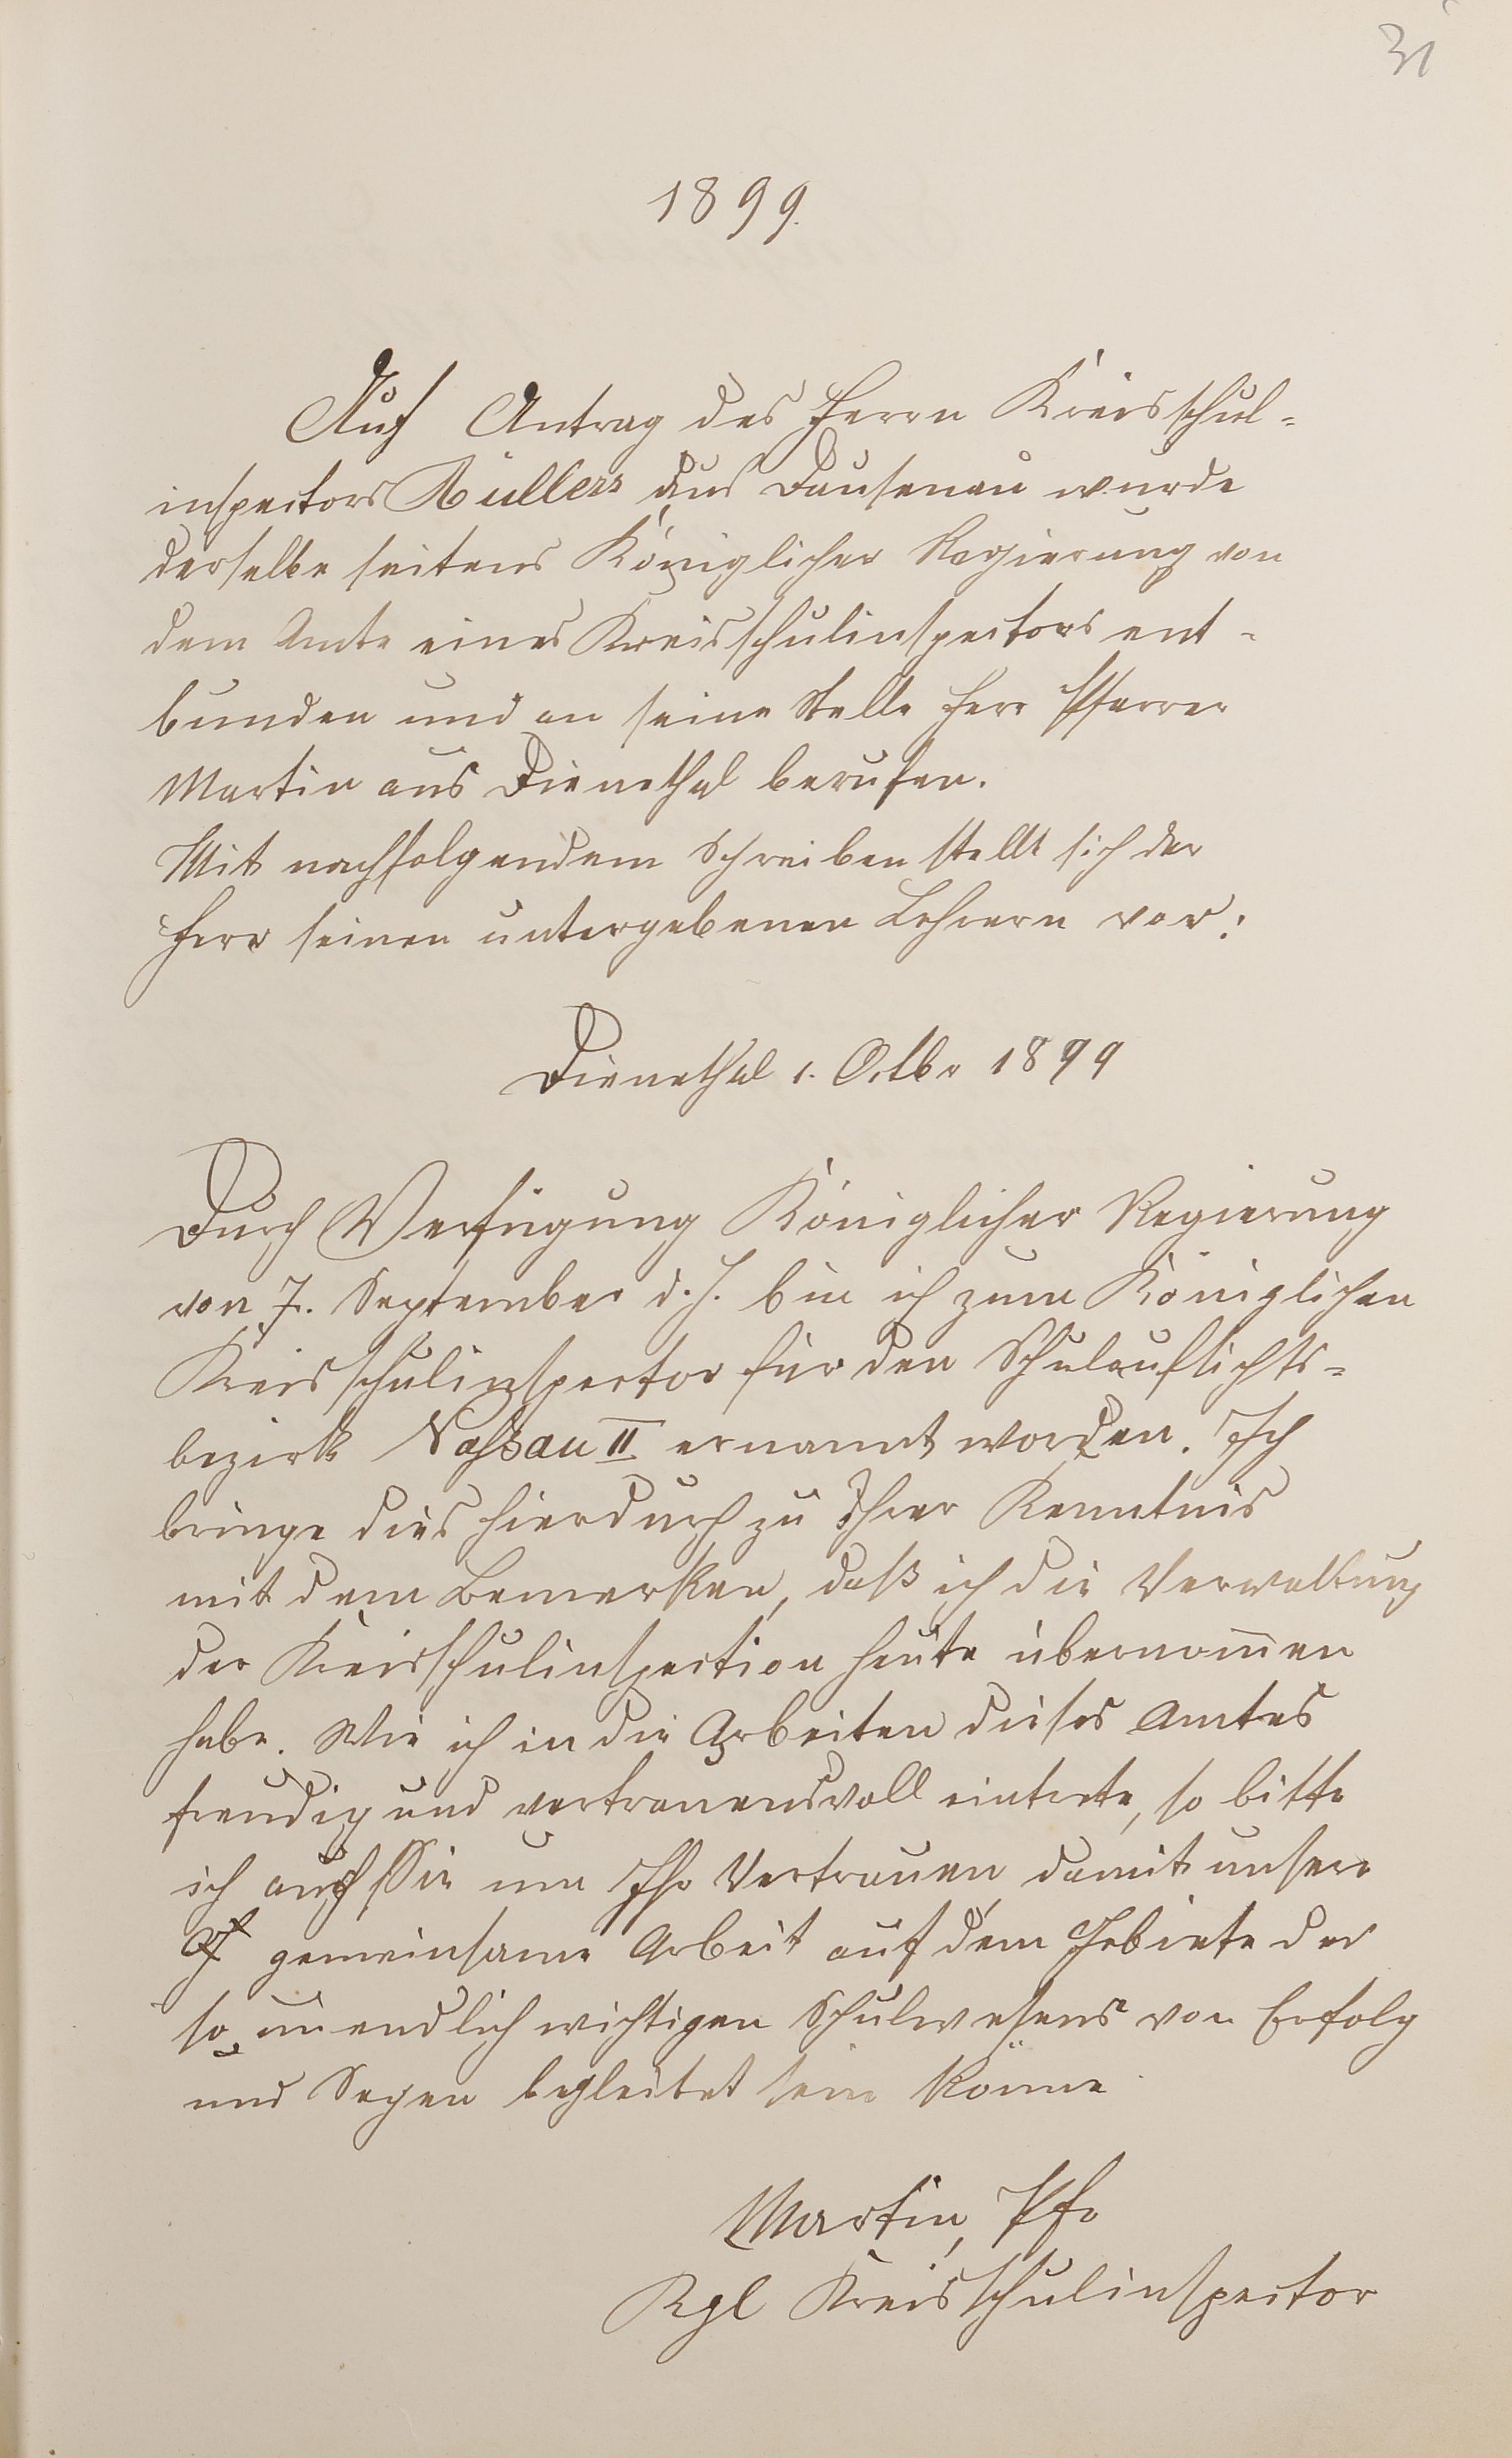 31
1899.
Auf Antrag des Herrn Kreisschul-
inspectors Büllers aus Dausenau wurde
derselbe seitens Königlicher Regierung von
dem Amte eines Kreisschulinspectors ent-
bunden und an seine Stelle Herr Pfarrer
Martin aus Dienethal berufen.
Mit nachfolgendem Schreiben stellt sich der
Herr seinen untergebenen Lehrern vor:
Dienethal 1. Octbr 1899
Durch Verfügung Königlicher Regierung
von 7. September d. J. bin ich zum Königlichen
Kreisschulinspector für den Schulaufsichts-
bezirk Nassau II ernannt worden. Ich
bringe dies hierdurch zu Ihrer Kenntnis
mit dem Bemerken, daß ich die Verwaltung
der Kreisschulinspection heute übernom̄en
habe. Wie ich in die Arbeiten dieses Amtes
freudig und vertrauensvoll eintrete, so bitte
ich auch Sie um Ihr Vertrauen, damit unsere
gemeinsame Arbeit auf dem Gebiete des
so unendlich wichtigen Schulwesens von Erfolg
und Segen begleitet sein könne.
Martin, Pfr
Kgl Kreisschulinspector